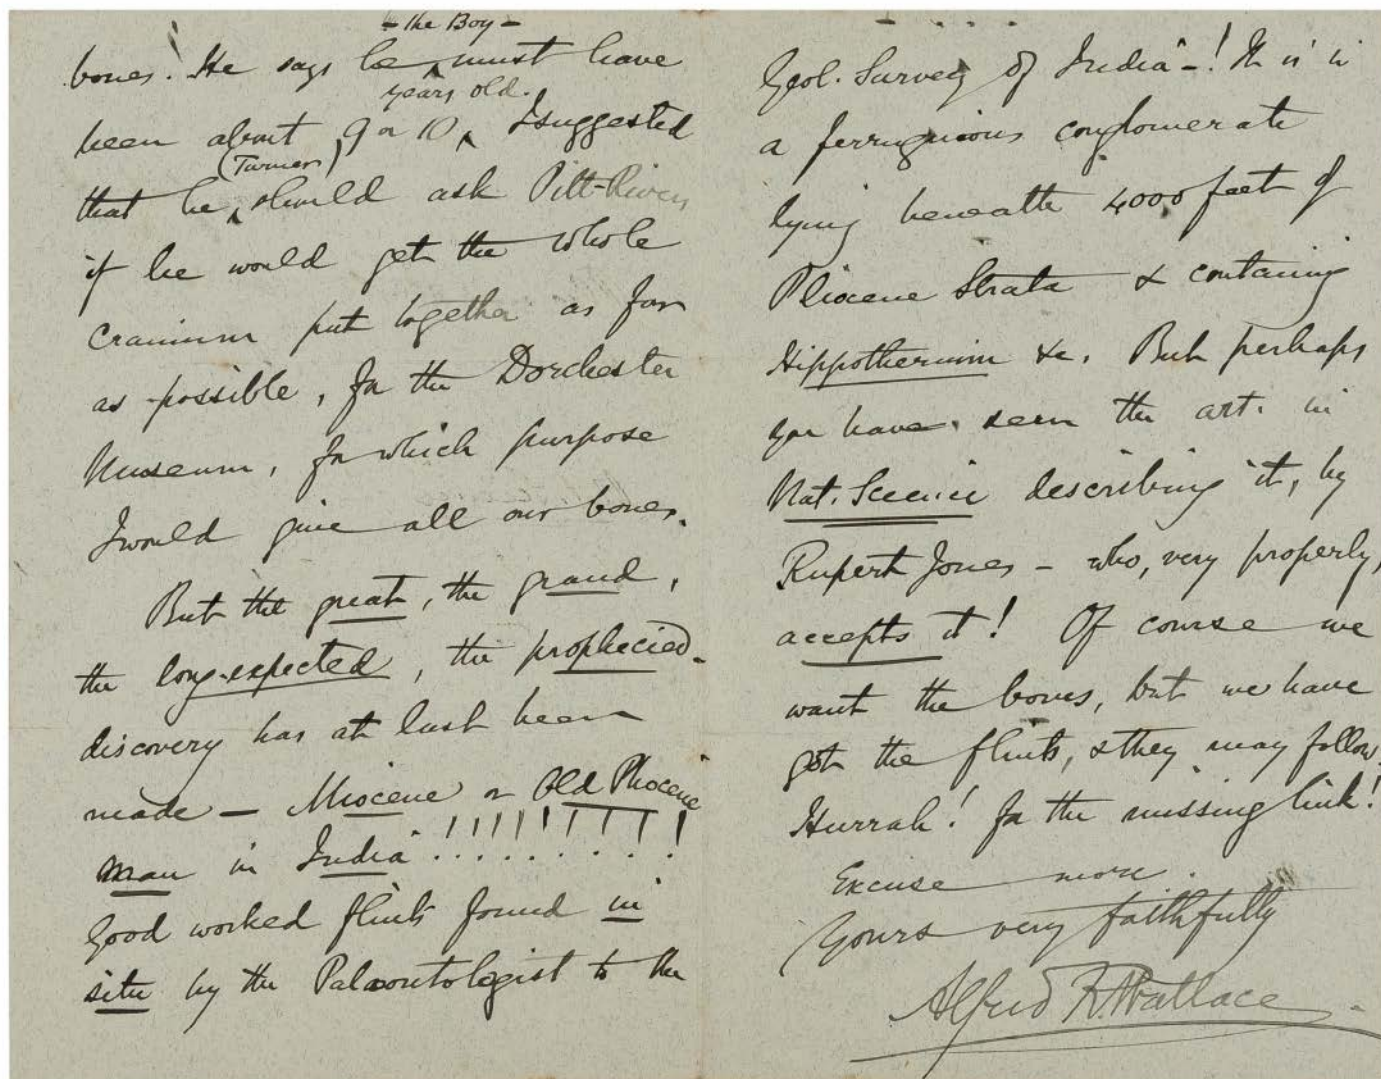 - the Boy -
bones! He says he ^ must have
years old.
been about 9 or 10 ^ I suggested
(Turner)
that he ^ should ask Pitt-Rivers
if he would get the whole
cranium put together as far
as possible, for the Dorchester
Museum, for which purpose
I would give all our bones.
But the great, the grand,
the long-expected, the prophecied
discovery has at last been
made — Miocene or Old Pliocene
man in India!!!!!!!!!
Good worked flints found in
situ by the Palaeontologist to the
Geol. Survey of India -! It is in
a ferruginous conglomerate
lying beneath 4000 feet of
Pliocene Strata & containing
Hippotherium &c. But perhaps
you have seen the art. in
Nat. Science describing it, by
Rupert Jones - who, very properly,
accepts it! Of course we
want the bones, but we have
got the flints, & they may follow.
Hurrah! for the missing link!
Excuse more.
Yours very faithfully
Alfred R. Wallace